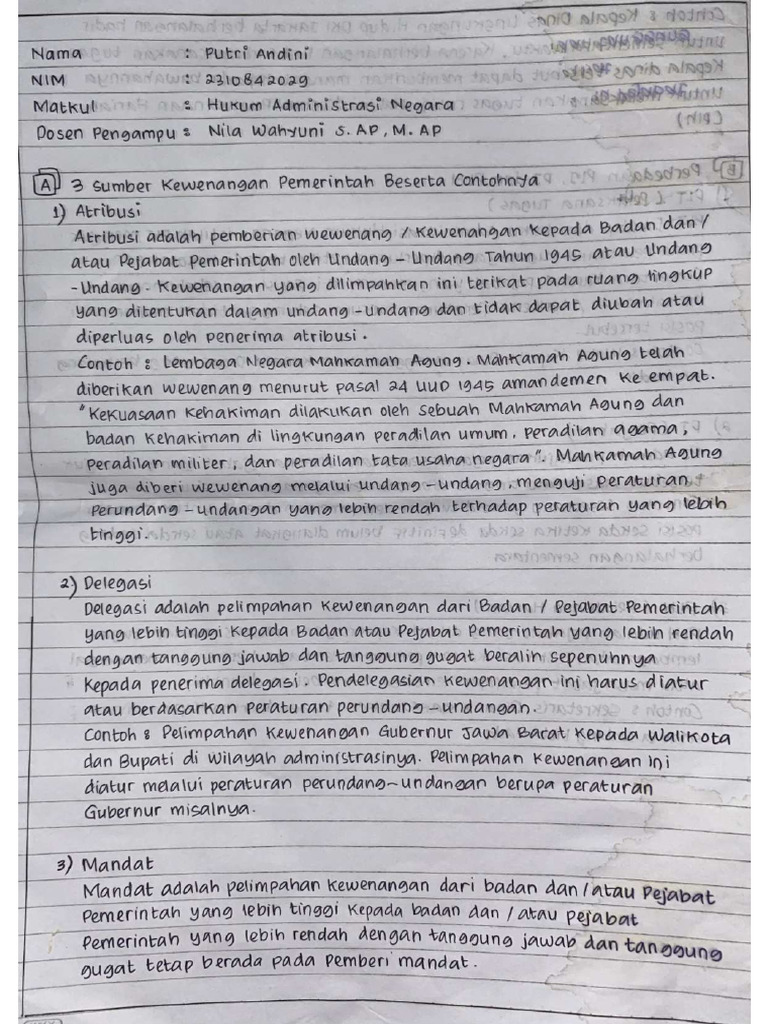 Nama : Putri Andini
NIM : 2310842029
Matkul : Hukum Administrasi Negara
Dosen Pengampu : Nila Wahyuni S. AP, M. AP
A 3 Sumber Kewenangan Pemerintah Beserta Contohnya
1) Atribusi
Atribusi adalah pemberian wewenang / Kewenangan kepada Badan dan/
atau Pejabat Pemerintah oleh Undang - Undang Tahun 1945 atau Undang
-Undang. Kewenangan yang dilimpahkan ini terikat pada ruang lingkup
yang ditentukan dalam undang-undang dan tidak dapat diubah atau
diperluas oleh penerima atribusi.
Contoh : Lembaga Negara Mahkamah Agung. Mahkamah Agung telah
diberikan wewenang menurut pasal 24 UUD 1945 amandemen Ke empat.
"Kekuasaan Kehakiman dilakukan oleh sebuah Mahkamah Agung dan
badan Kehakiman di lingkungan peradilan umum, peradilan agama,
Peradilan militer, dan peradilan tata usaha negara". Mahkamah Agung
juga diberi wewenang melalui undang-undang, menguji Peraturan
Perundang-undangan yang lebih rendah terhadap peraturan yang lebih
tinggi.
2) Delegasi
Delegasi adalah pelimpahan Kewenangan dari Badan / Pejabat Pemerintah
yang lebih tinggi Kepada Badan atau Pejabat Pemerintah yang lebih rendah
dengan tanggung jawab dan tanggung gugat beralih sepenuhnya
Kepada penerima delegasi. Pendelegasian Kewenangan ini harus diatur
atau berdasarkan peraturan perundang-undangan.
Contoh : Pelimpahan Kewenangan Gubernur Jawa Barat Kepada Walikota
dan Bupati di Wilayah administrasinya. Pelimpahan Kewenangan ini
diatur melalui peraturan perundang-undangan berupa peraturan
Gubernur misalnya.
3) Mandat
Mandat adalah pelimpahan Kewenangan dari badan dan/atau Pejabat
Pemerintah yang lebih tinggi Kepada badan dan/atau pejabat
Pemerintah yang lebih rendah dengan tanggung jawab dan tanggung
gugat tetap berada pada Pemberi mandat.